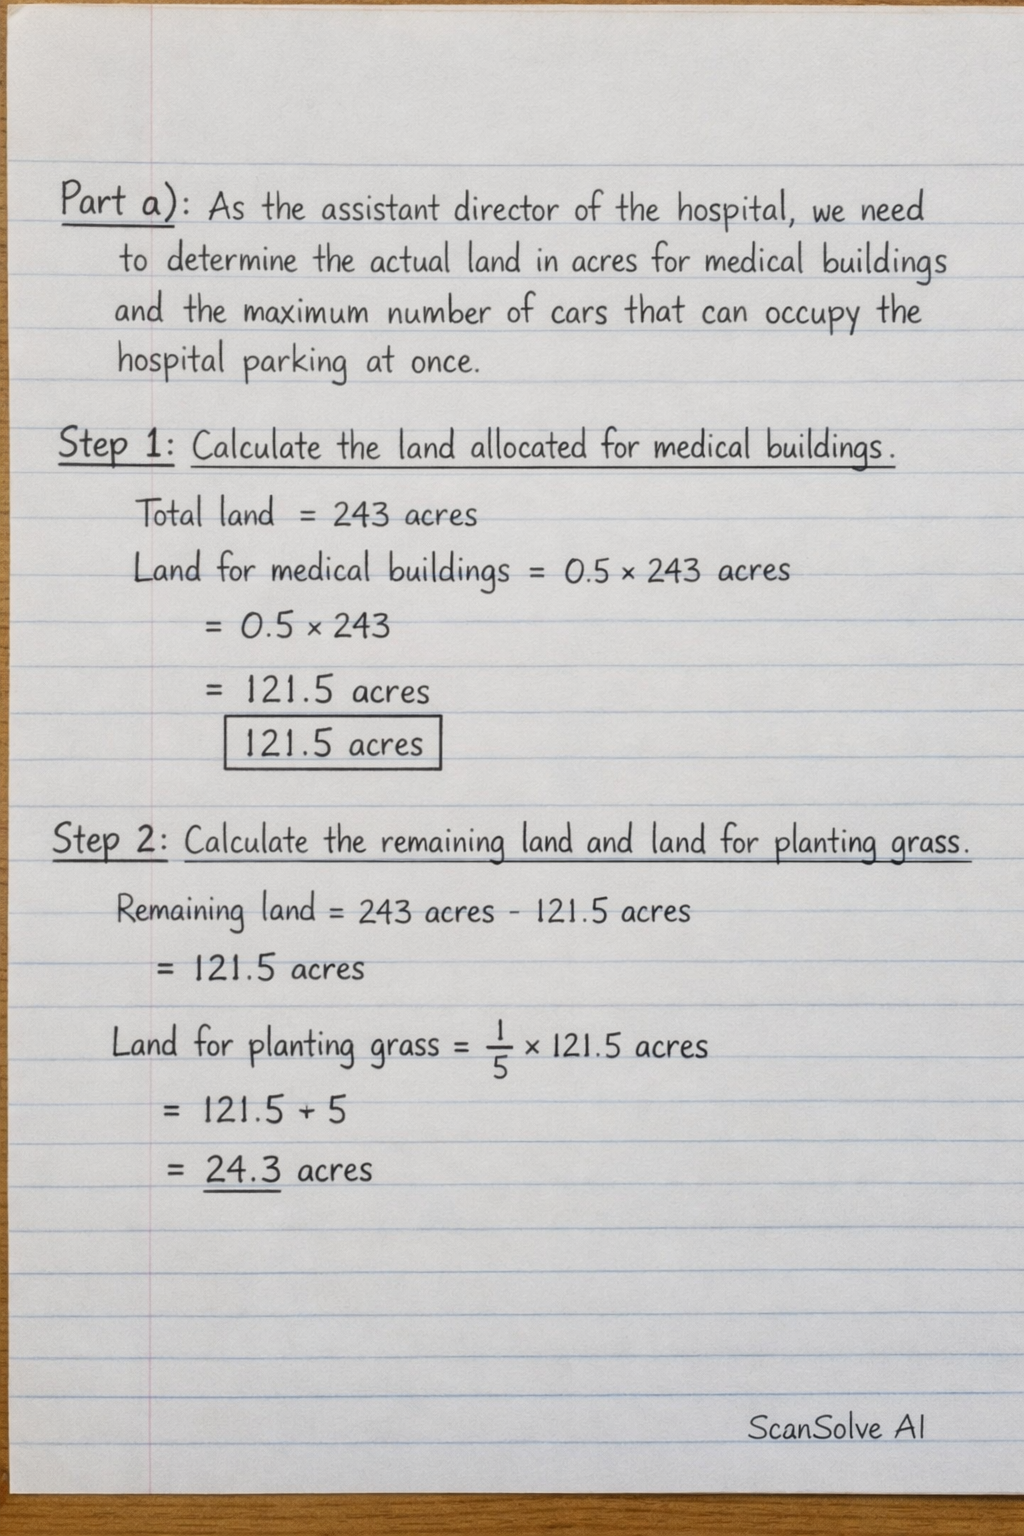 Part a): As the assistant director of the hospital, we need
to determine the actual land in acres for medical buildings
and the maximum number of cars that can occupy the
hospital parking at once.
Step 1: Calculate the land allocated for medical buildings.
Total land = 243 acres
Land for medical buildings = 0.5 × 243 acres
= 0.5 × 243
= 121.5 acres
121.5 acres
Step 2: Calculate the remaining land and land for planting grass.
Remaining land = 243 acres - 121.5 acres
= 121.5 acres
Land for planting grass = 1/5 × 121.5 acres
= 121.5 + 5
= 24.3 acres
ScanSolve AI